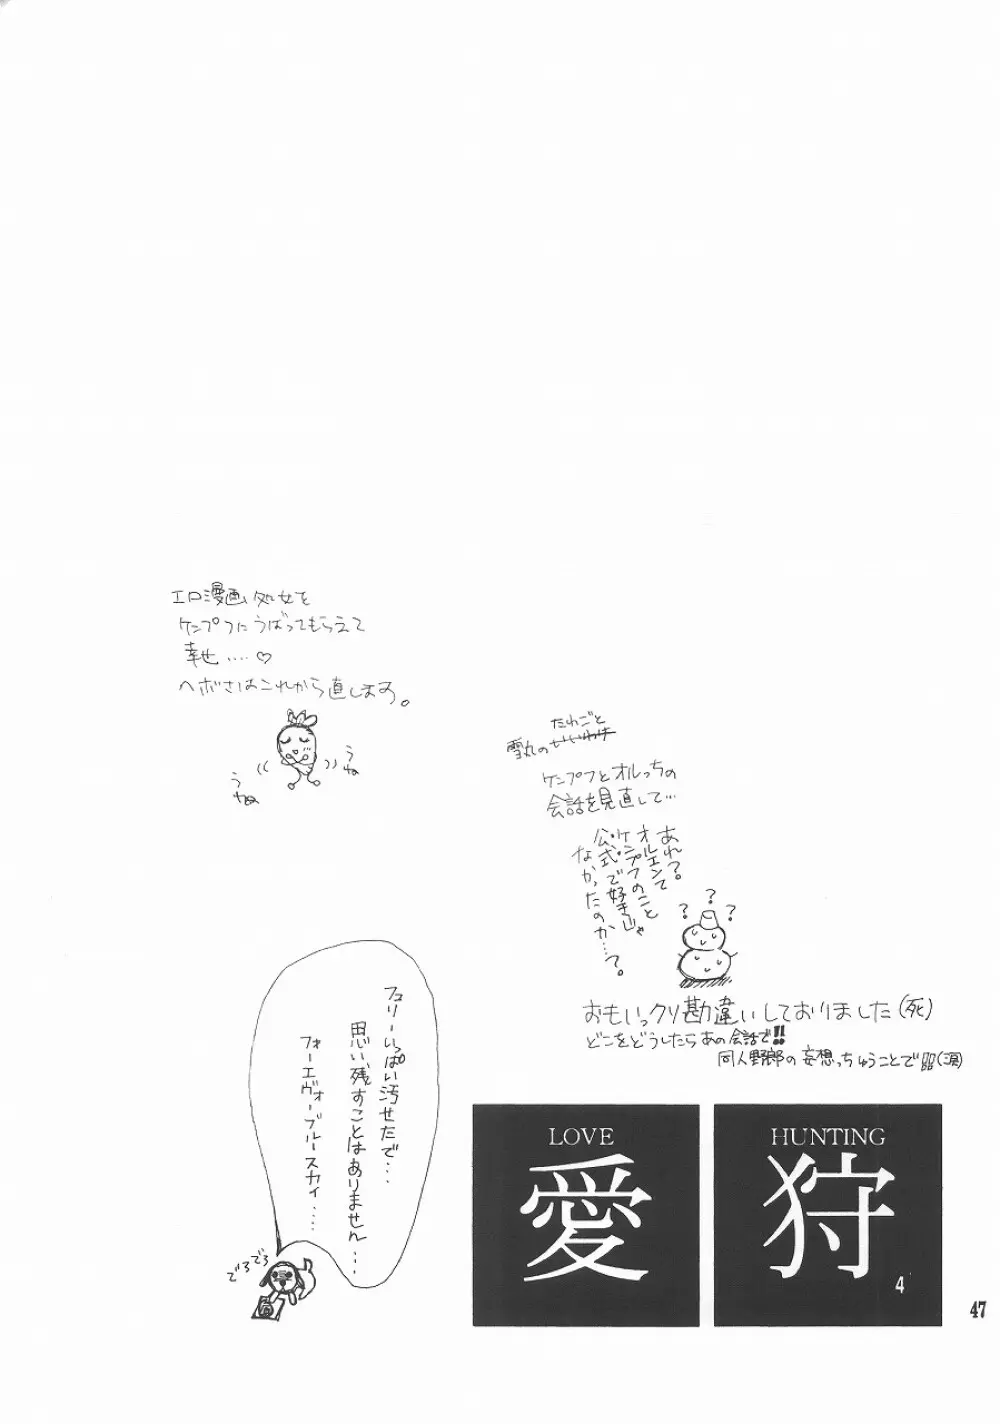 エロ漫画処女を
ケンプフにうばってもらえて
幸せ‥‥♡
ヘボさはこれから直します。
うね
うね
雪丸の
たわごと
ケンプフとオルっちの
会話を見直して…
あれ?
オルエンて
ケンプフのこと
公式で好きじゃ
なかったのか…?。
? ? ?
おもいっクソ勘違いしておりました(死)
どこをどうしたらあの会話で!!
同人野郎の妄想っちゅうことで(涙)
フュリーいっぱい汚せたで‥‥
思い残すことはありません‥‥
フォーエヴァーブルースカイ‥‥
でろでろ
LOVE
愛
HUNTING
狩
4
47